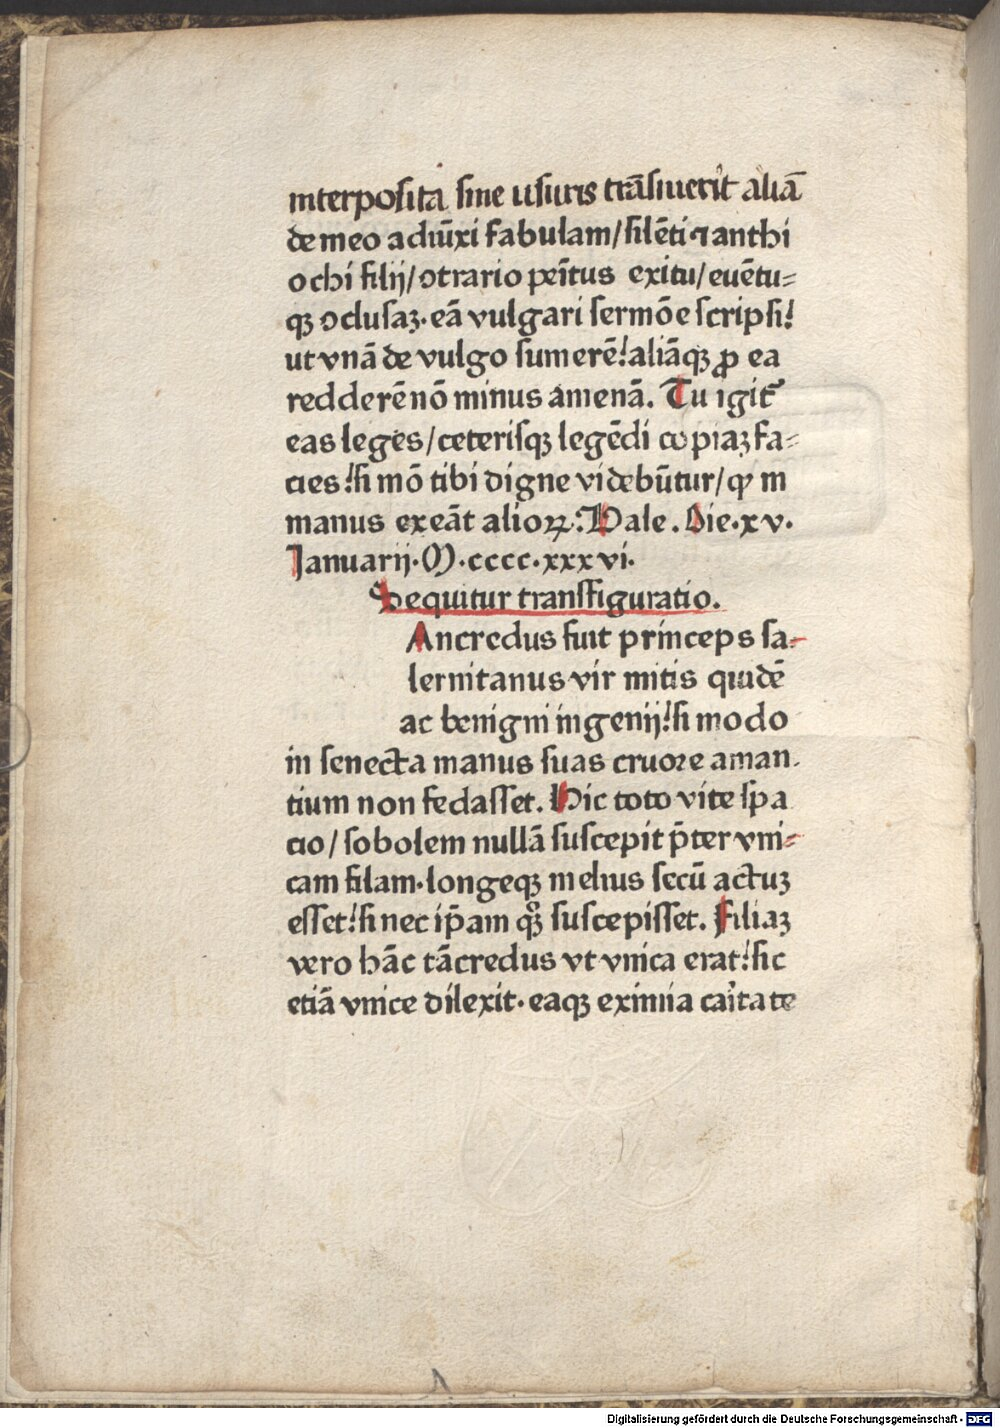 interposita sine usuris trāsiuerit aliā
de meo adiūxi fabulam/silēti⁊anthi
ochi filij/ꝯtrario peītus exitu/euētu⸗
qꝫ ꝯclusaꝫ·eā vulgari sermōe scripsi!
ut vnā de vulgo sumerē!aliāqꝫ ꝓ ea
redderē nō minus amenā. Tu igit᷑
eas leges/ceterisqꝫ legēdi copiaꝫ fa⸗
cies!si mō tibi digne videbūtur/ꝙ in
manus exeāt alioꝝ. Vale. Die·xv.
Januarij·M·cccc·xxxvi.
Sequitur transfiguratio.
Ancredus fuit princeps sa⸗
lernitanus vir mitis quidē
ac benigni ingenij!si modo
in senecta manus suas cruore aman.
tium non fedasset. Hic toto vite spa
cio/sobolem nullā suscepit p̄ter vni⸗
cam filam·longeqꝫ melius secū actuꝫ
esset!si nec ip̄am qꝫ suscepisset. Filiaꝫ
vero hāc tācredus vt vnica erat!sic
etiā vnice dilexit·eaqꝫ eximia caītate
Digitalisierung gefördert durch die Deutsche Forschungsgemeinschaft - DFG